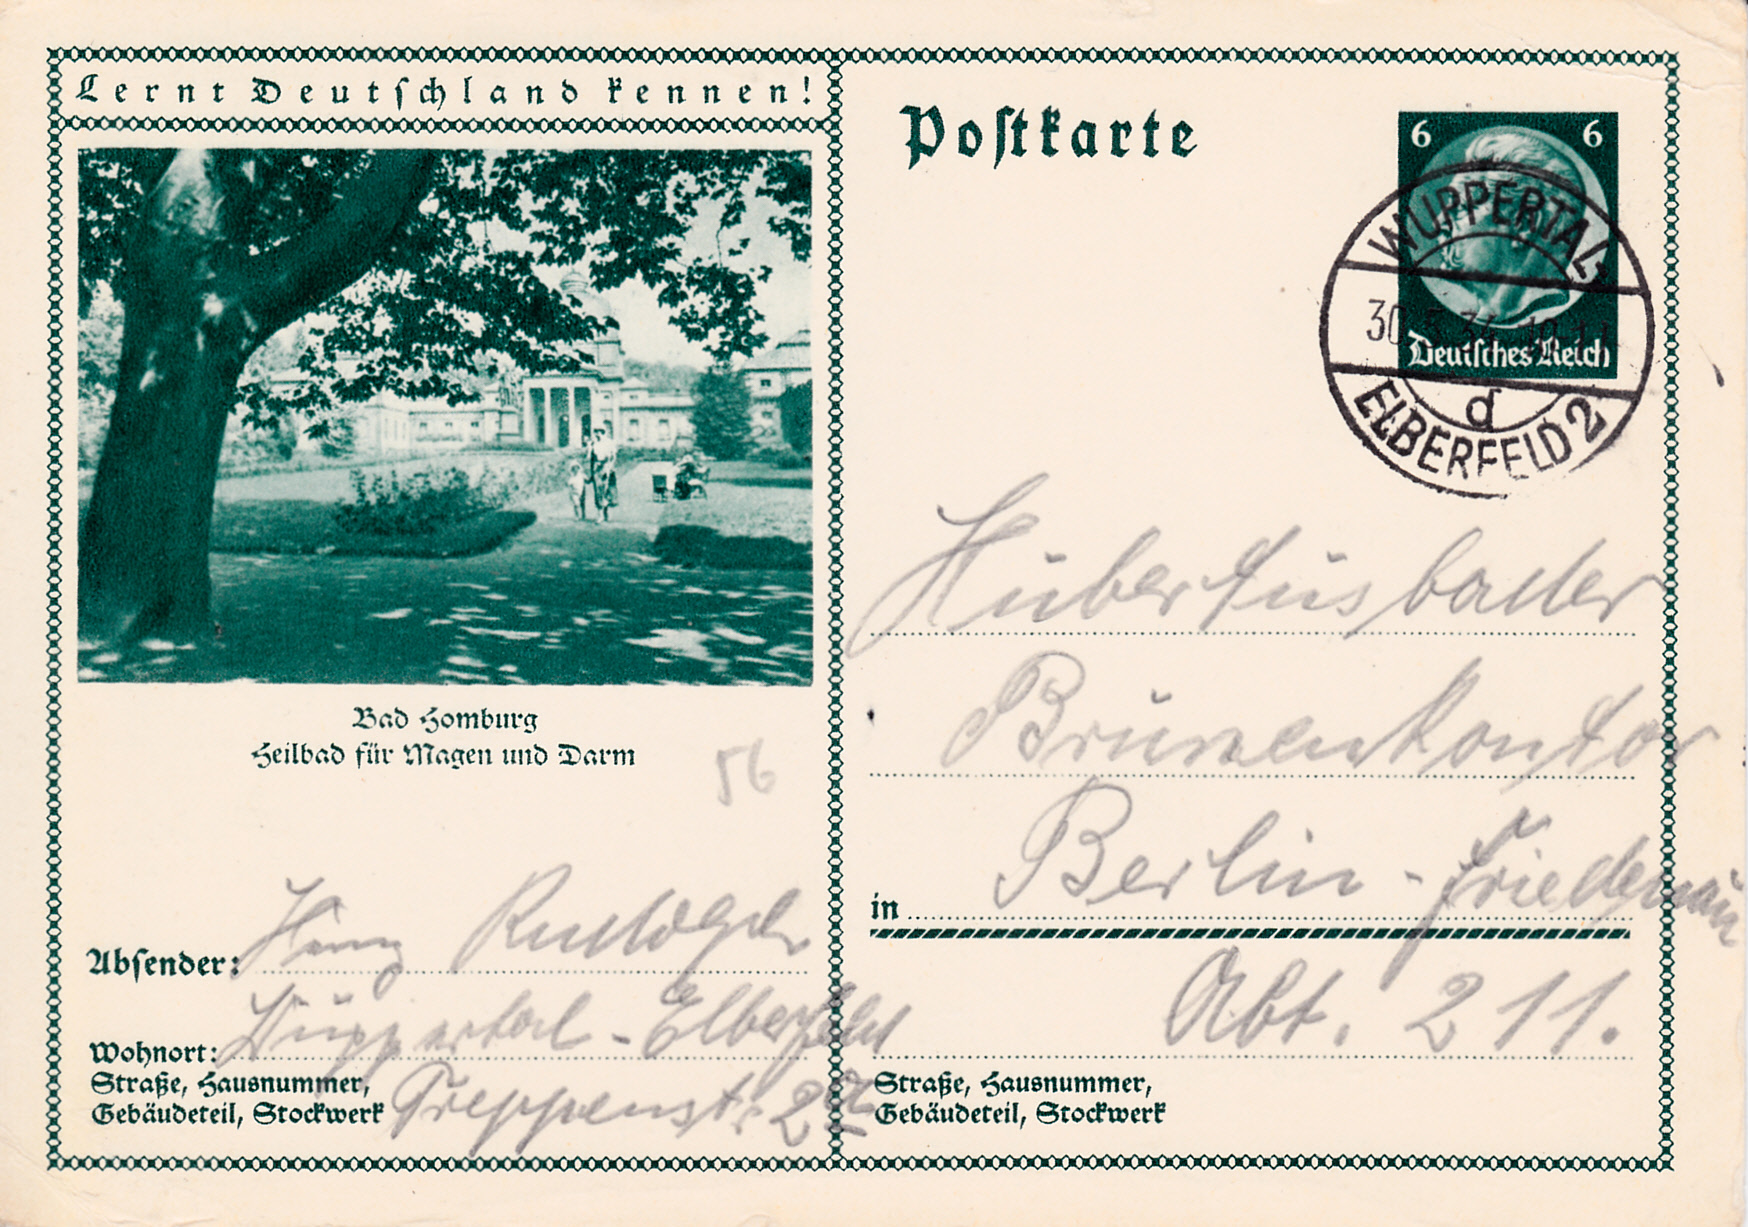 Lernt Deutschland kennen!
Bad Homburg
Heilbad für Magen und Darm
56
Absender:
Wohnort: Wuppertal-Elberfeld
Straße, Hausnummer,
Gebäudeteil, Stockwerk Treppenstr.
Postkarte
6 6
Deutsches Reich
WUPPERTAL-
30.5.34. 10-11
d
ELBERFELD 2
Hubertusbader
Brunnenkontor
in Berlin-Friedenau
Abt. 211.
Straße, Hausnummer,
Gebäudeteil, Stockwerk